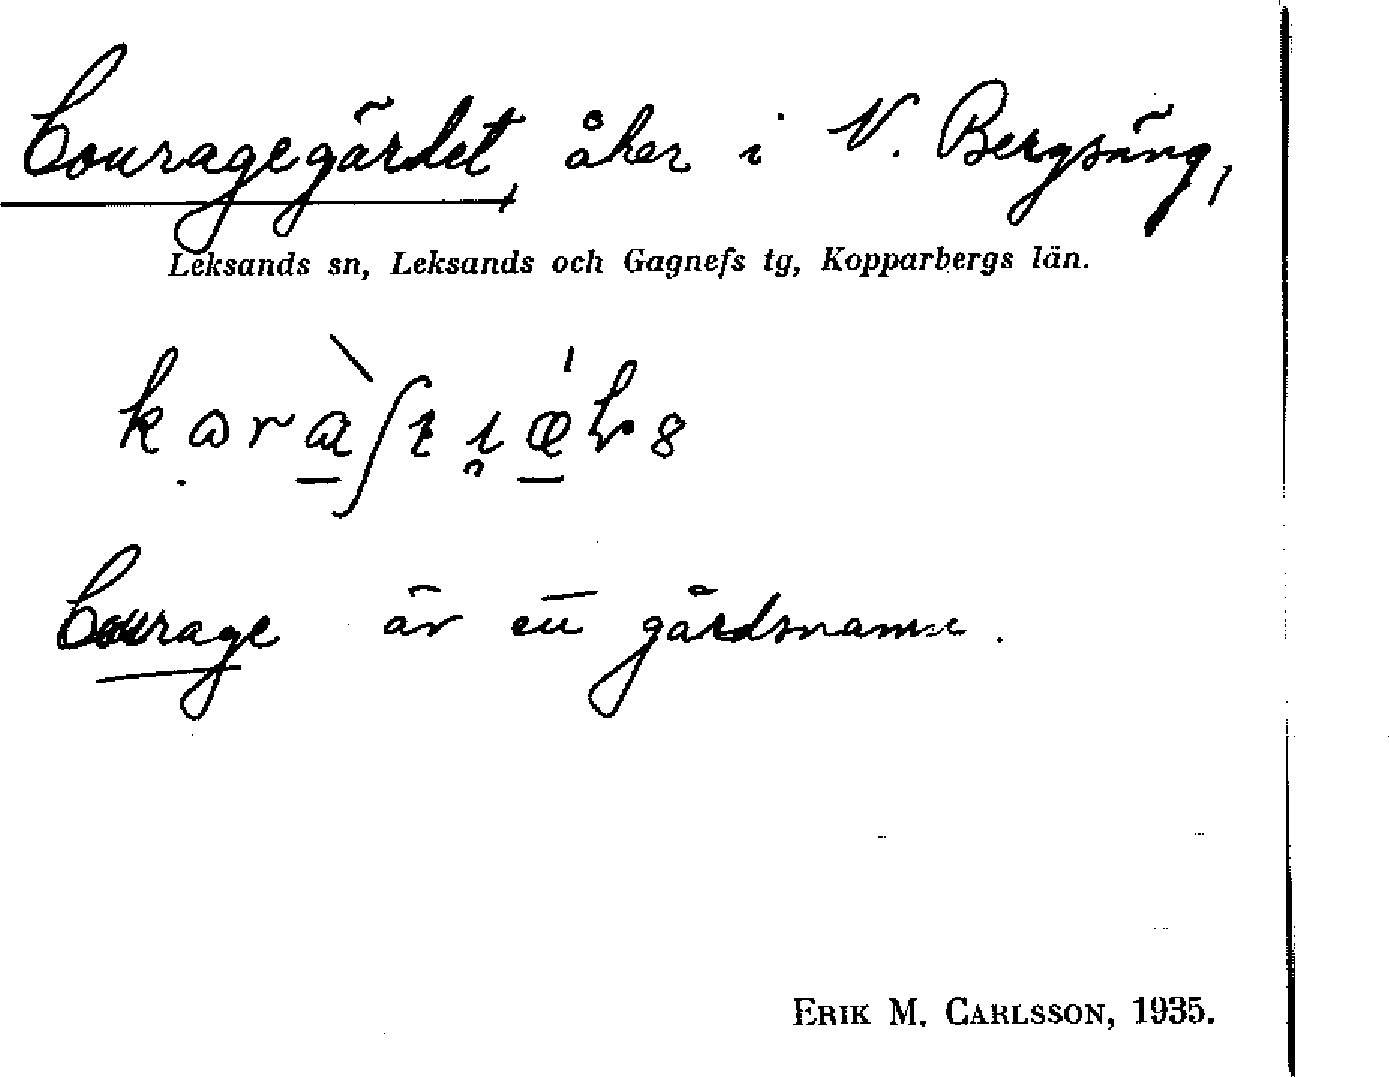 Couragegärdet, åker i N. Bergsäng,
Leksands sn, Leksands och Gagnefs tg, Kopparbergs län.
Courage är ett gårdsnamn.
ERIK M. CARLSSON, 1935.